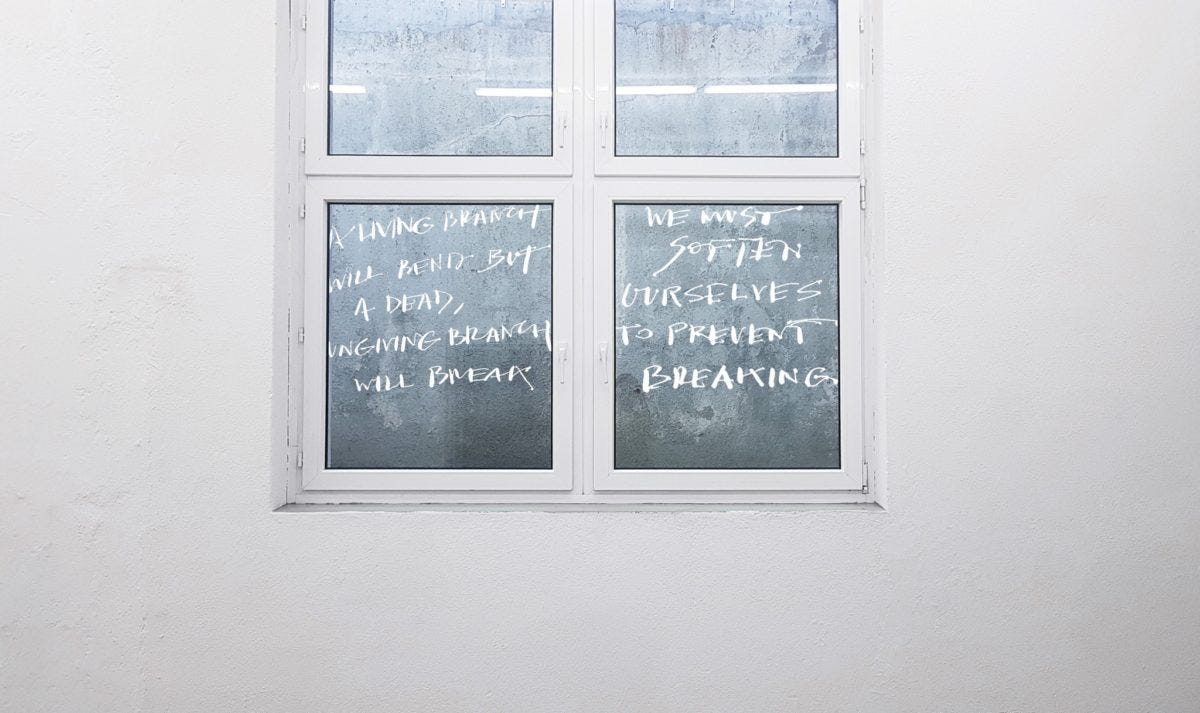 A LIVING BRANCH
WILL BEND BUT
A DEAD,
UNGIVING BRANCH
WILL BREAK
WE MUST
SOFTEN
OURSELVES
TO PREVENT
BREAKING.